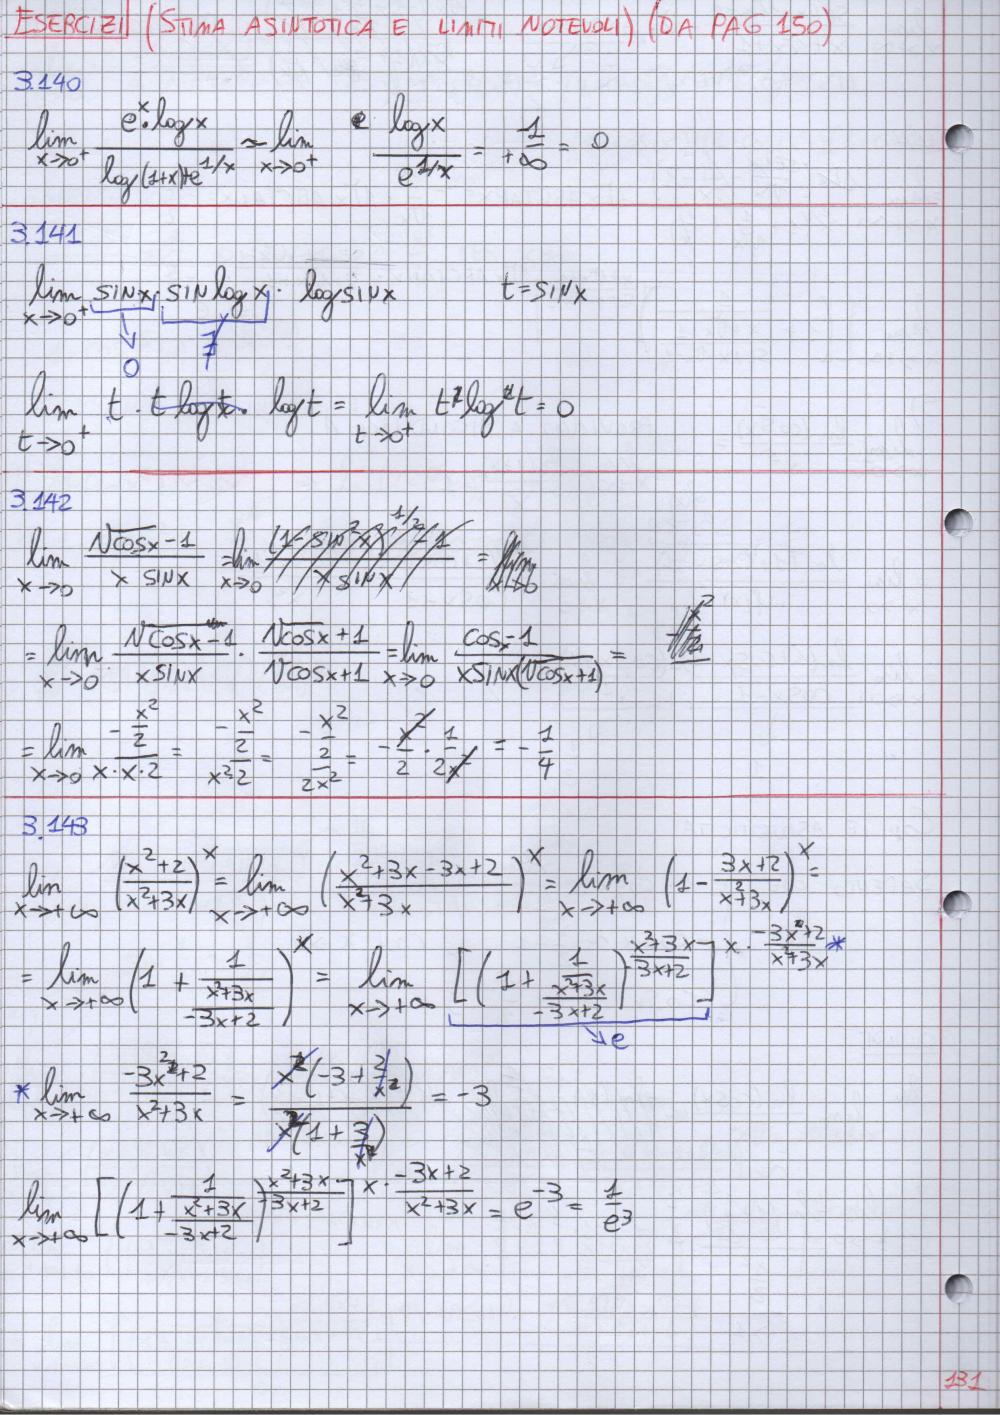 ESERCIZI (STIMA ASINTOTICA E LIMITI NOTEVOLI) (DA PAG 150)
3.140
lim x→0⁺ (eˣ·log x)/(log(1+x)+e^(1/x)) ~ lim x→0⁺ (log x)/(e^(1/x)) = 1/+∞ = 0
3.141
lim x→0⁺ sin x · sin log x · log sin x   t = sin x
↓ 0   ∄
lim t→0⁺ t · t log t · log t = lim t→0⁺ t² log² t = 0
3.142
lim x→0 (√cos x - 1)/(x sin x) = lim x→0 ((1 - sin² x)^(1/2) - 1)/(x sin x) =
= lim x→0 (√cos x - 1)/(x sin x) · (√cos x + 1)/(√cos x + 1) = lim x→0 (cos x - 1)/(x sin x (√cos x + 1)) =
= lim x→0 (-x²/2)/(x·x·2) = (-x²/2)/(x² 2) = (-x²/2)/(2x²) = -x²/2 · 1/(2x²) = -1/4
3.143
lim x→+∞ ((x²+2)/(x²+3x))^x = lim x→+∞ ((x²+3x-3x+2)/(x²+3x))^x = lim x→+∞ (1 - (3x+2)/(x²+3x))^x =
= lim x→+∞ (1 + 1/((x²+3x)/(-3x+2)))^x = lim x→+∞ [(1 + 1/((x²+3x)/(-3x+2)))^((x²+3x)/(-3x+2))]^(x · (-3x²+2)/(x²+3x)) *
↘ e
* lim x→+∞ (-3x²+2)/(x²+3x) = (x²(-3 + 2/x²))/(x²(1 + 3/x)) = -3
lim x→+∞ [(1 + 1/((x²+3x)/(-3x+2)))^((x²+3x)/(-3x+2))]^(x · (-3x+2)/(x²+3x)) = e⁻³ = 1/e³
131